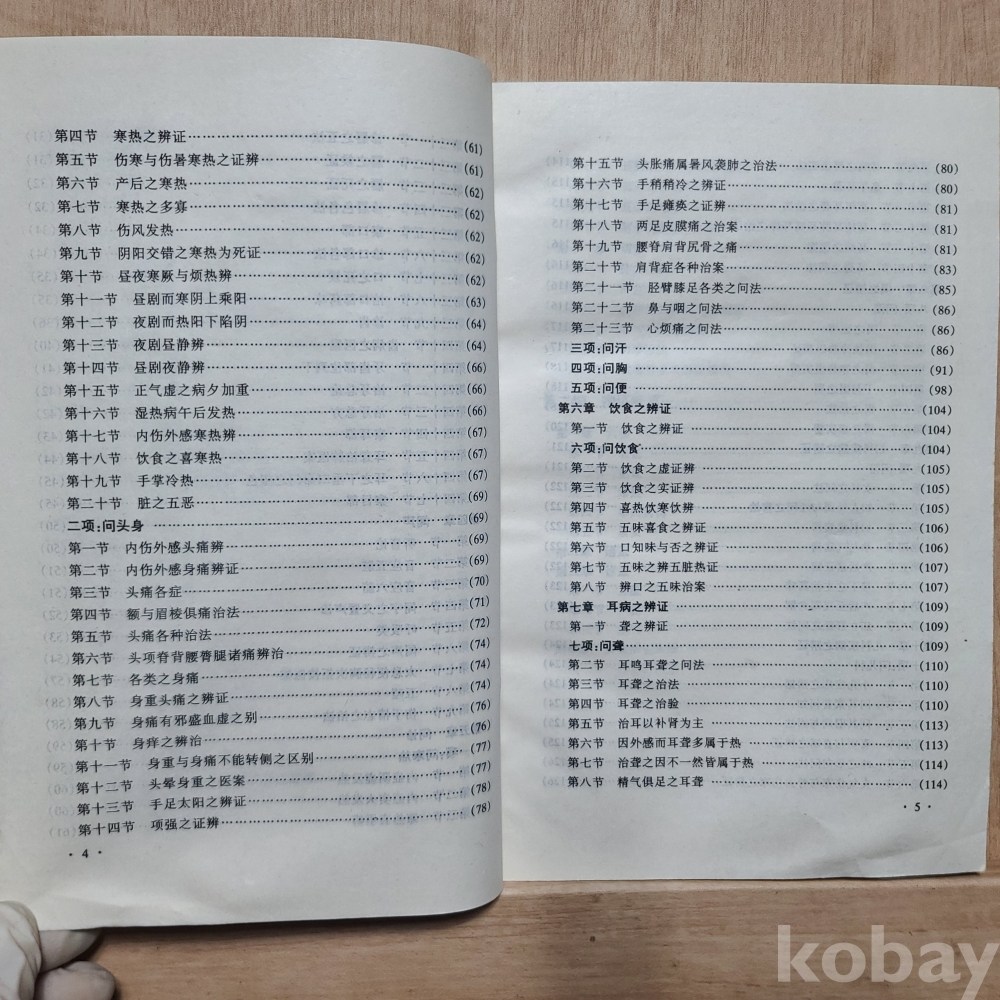 第四节 寒热之辨证……(61)
第五节 伤寒与伤暑寒热之证辨……(61)
第六节 产后之寒热……(62)
第七节 寒热之多寡……(62)
第八节 伤风发热……(62)
第九节 阴阳交错之寒热为死证……(62)
第十节 昼夜寒厥与烦热辨……(62)
第十一节 昼剧而寒阴上乘阳……(63)
第十二节 夜剧而热阳下陷阴……(64)
第十三节 夜剧昼静辨……(64)
第十四节 昼剧夜静辨……(66)
第十五节 正气虚之病夕加重……(66)
第十六节 湿热病午后发热……(66)
第十七节 内伤外感寒热辨……(67)
第十八节 饮食之喜寒热……(67)
第十九节 手掌冷热……(67)
第二十节 脏之五恶……(69)
二项:问头身……(69)
第一节 内伤外感头痛辨……(69)
第二节 内伤外感身痛辨证……(69)
第三节 头痛各症……(70)
第四节 额与眉棱俱痛治法……(71)
第五节 头痛各种治法……(72)
第六节 头项脊背腰臀腿诸痛辨治……(74)
第七节 各类之身痛……(74)
第八节 身重头痛之辨证……(74)
第九节 身痛有邪盛血虚之别……(76)
第十节 身痒之辨治……(76)
第十一节 身重与身痛不能转侧之区别……(77)
第十二节 头晕身重之医案……(77)
第十三节 手足太阳之辨证……(78)
第十四节 项强之证辨……(78)
·4·
第十五节 头胀痛属暑风袭肺之治法……(80)
第十六节 手稍稍冷之辨证……(80)
第十七节 手足瘫痪之证辨……(81)
第十八节 两足皮膜痛之治案……(81)
第十九节 腰脊肩背尻骨之痛……(81)
第二十节 肩背症各种治案……(83)
第二十一节 胫臂膝足各类之问法……(85)
第二十二节 鼻与咽之问法……(86)
第二十三节 心烦痛之问法……(86)
三项:问汗……(86)
四项:问胸……(91)
五项:问便……(98)
第六章 饮食之辨证……(104)
第一节 饮食之辨证……(104)
六项:问饮食……(104)
第二节 饮食之虚证辨……(105)
第三节 饮食之实证辨……(105)
第四节 喜热饮寒饮辨……(105)
第五节 五味喜食之辨证……(106)
第六节 口知味与否之辨证……(106)
第七节 五味之辨五脏热证……(107)
第八节 辨口之五味治案……(107)
第七章 耳病之辨证……(109)
第一节 聋之辨证……(109)
七项:问聋……(109)
第二节 耳鸣耳聋之问法……(110)
第三节 耳聋之治法……(110)
第四节 耳聋之治验……(110)
第五节 治耳以补肾为主……(113)
第六节 因外感而耳聋多属于热……(113)
第七节 治聋之因不一然皆属于热……(114)
第八节 精气俱足之耳聋……(114)
·5·
kobay